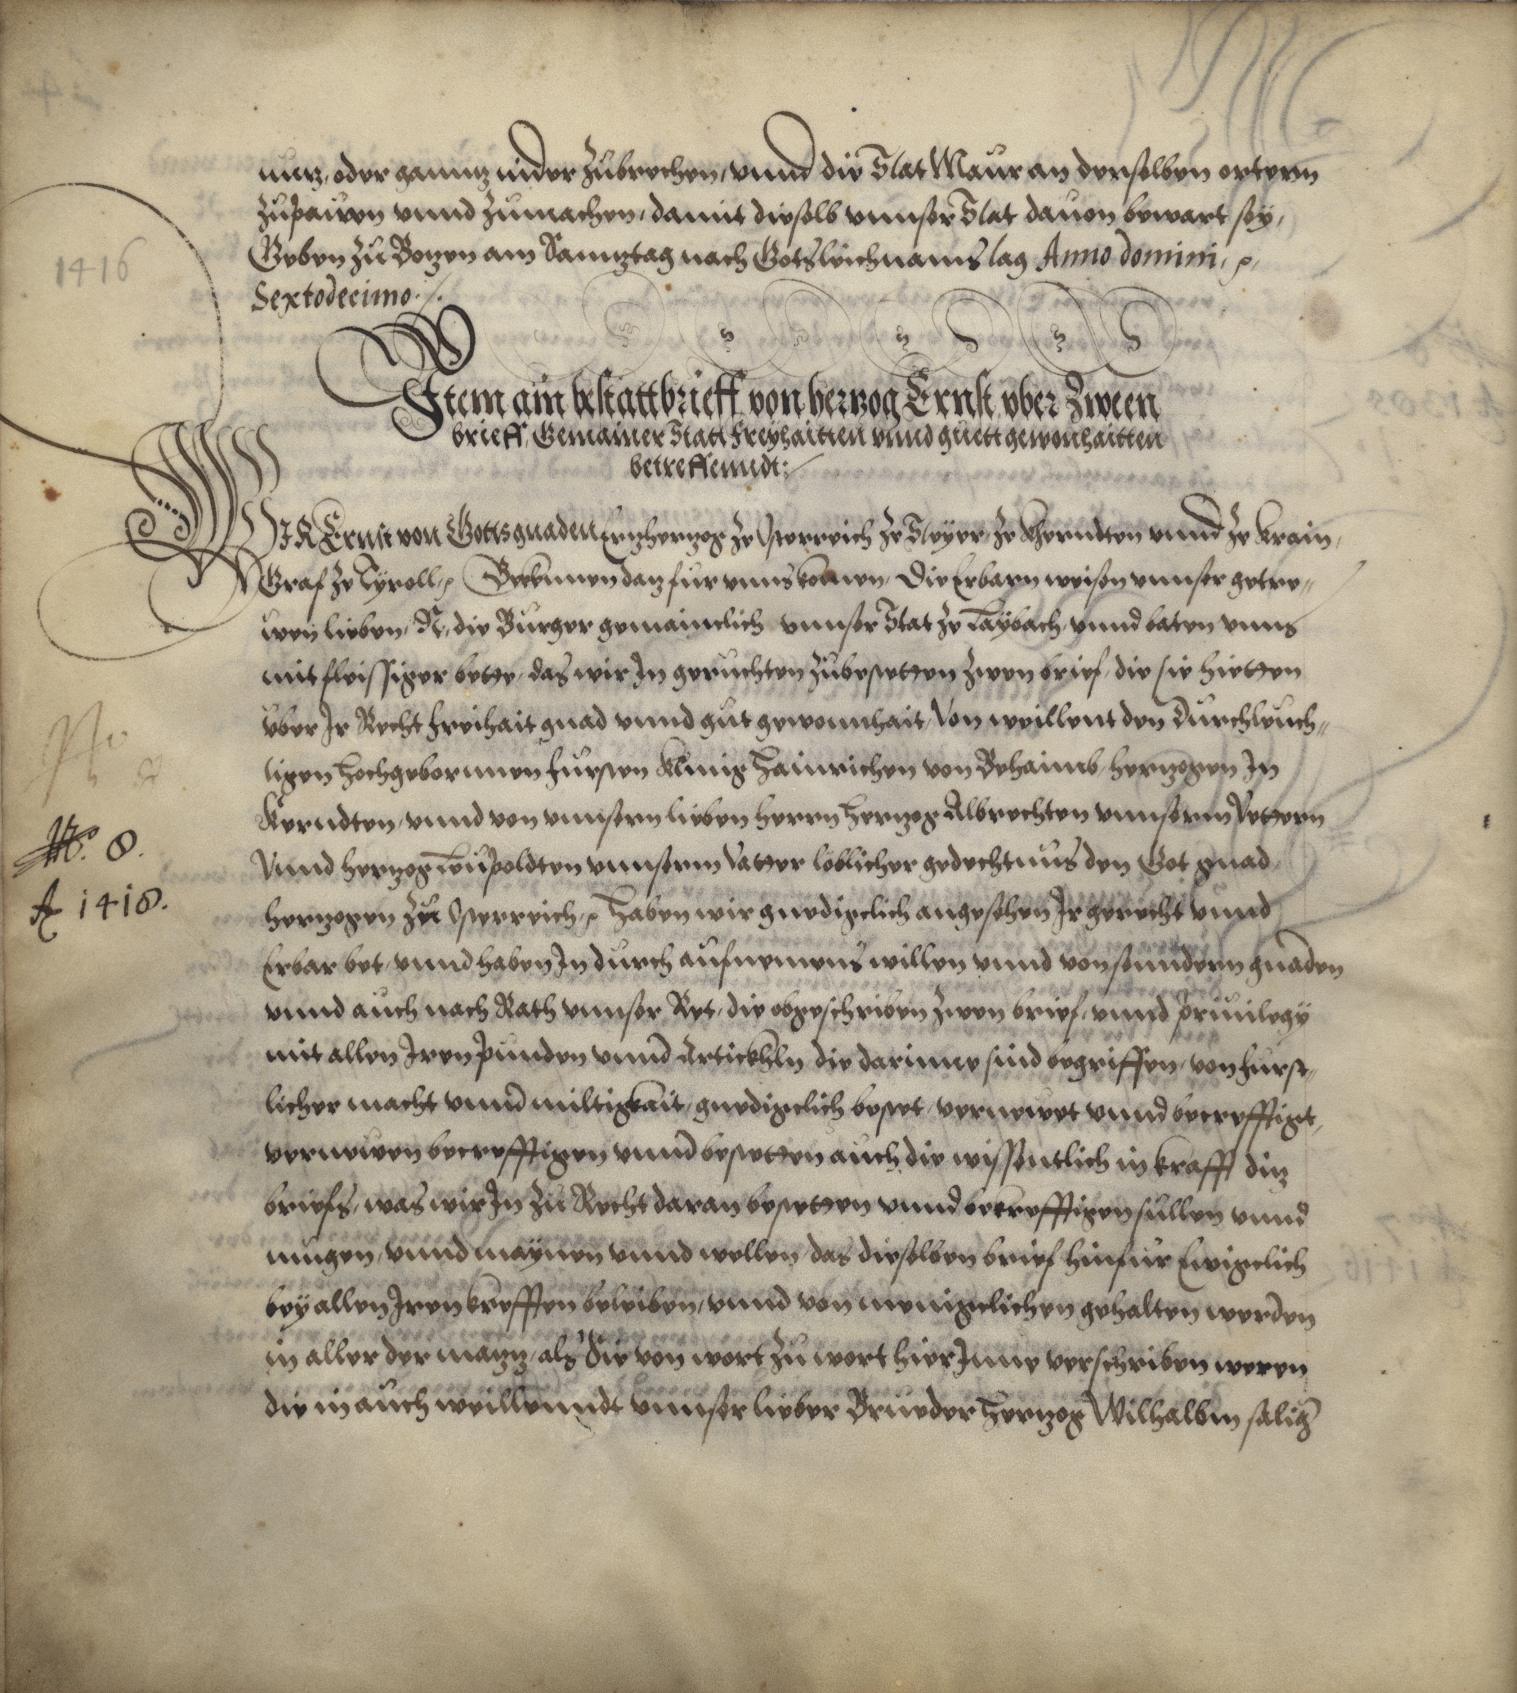 nutz, oder ganntz nider zubrechen, vnnd die Stat Maur an denselben ortern
zupawen vnnd zumachen, damit dieselb vnnser Stat dauon bewart sey,
Geben zu Bozen am Sambtztag nach Gotsleichnamstag Anno domini, etc,
Sextodecimo ./.
1416
Item ain bestattbrieff von hertzog Ernst vber Zween
brieff, Gemainer Statt freyhaitten vnnd guett gewonhaitten
betreffenndt:
WIR Ernst von Gotts gnaden Ertzhertzog ze Osterreich ze Steyer, ze Kherndten vnnd ze Krain,
Graf ze Tyroll etc Bekennen daz fur vnns komen, Die Erbarn weisen vnnser getre„
wen lieben, N, die Burger gemainclich vnnser Stat ze Laybach, vnnd baten vnns
mit fleissiger bette, das wir In geruchten zubestetten zwen brief, die sie hietten
vber Ir Recht freihait gnad vnnd gut gewonnhait, Von weillent den durchleuch„
tigen hochgebornnen fursten Khunig Hainrichen von Behaimb, hertzogen In
Kerndten, vnnd von vnnsern lieben herrn hertzog Albrechten vnnserm Vettern
Vnnd hertzog Leupoldten vnnserm Vatter loblicher gedechtnus den Got gnad
No. 8.
A 1418.
hertzogen zu Osterreich, etc haben wir gnedigclich angesehen Ir gerecht vnnd
Erbar bet, vnnd haben In durch aufnemens willen vnnd von sunndern gnaden
vnnd auch nach Rath vnnser Ret, die obgeschriben zwen brief, vnnd priuilegy
mit allen Iren punden vnnd Artickhln die darinne sind begriffen, von furst„
licher macht vnnd miltigkait, gnedigclich bestet, vernewet vnnd becrefftiget,
vernewen becrefftigen vnnd bestetten auch die wissentlich in krafft ditz
briefs, was wir In zu Recht daran bestetten vnnd bekrefftigen sullen vnnd
mugen, vnnd maynen vnnd wellen, das dieselben brief hinfur Ewigclich
bey allen Iren krefften beleiben, vnnd von menigclichen gehalten werden
in aller der mazz, als die von wort zu wort hier Inne verschriben weren
die in auch weillenndt vnnser lieber Brueder Hertzog Wilhalbm salig